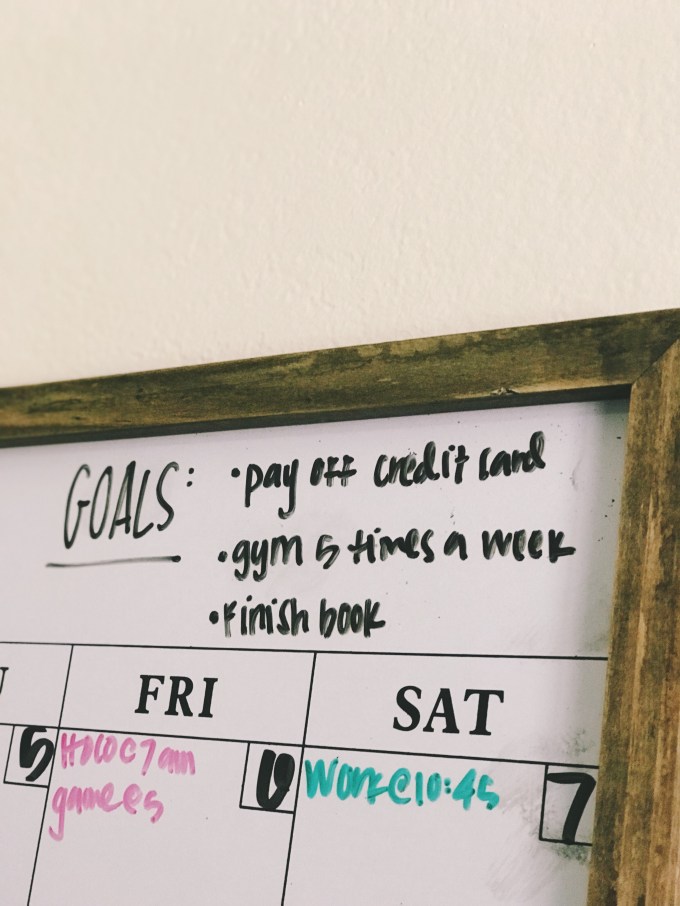 GOALS: •pay off credit card
•gym 5 times a week
•Finish book
FRI SAT
5 6 Work@10:45 7